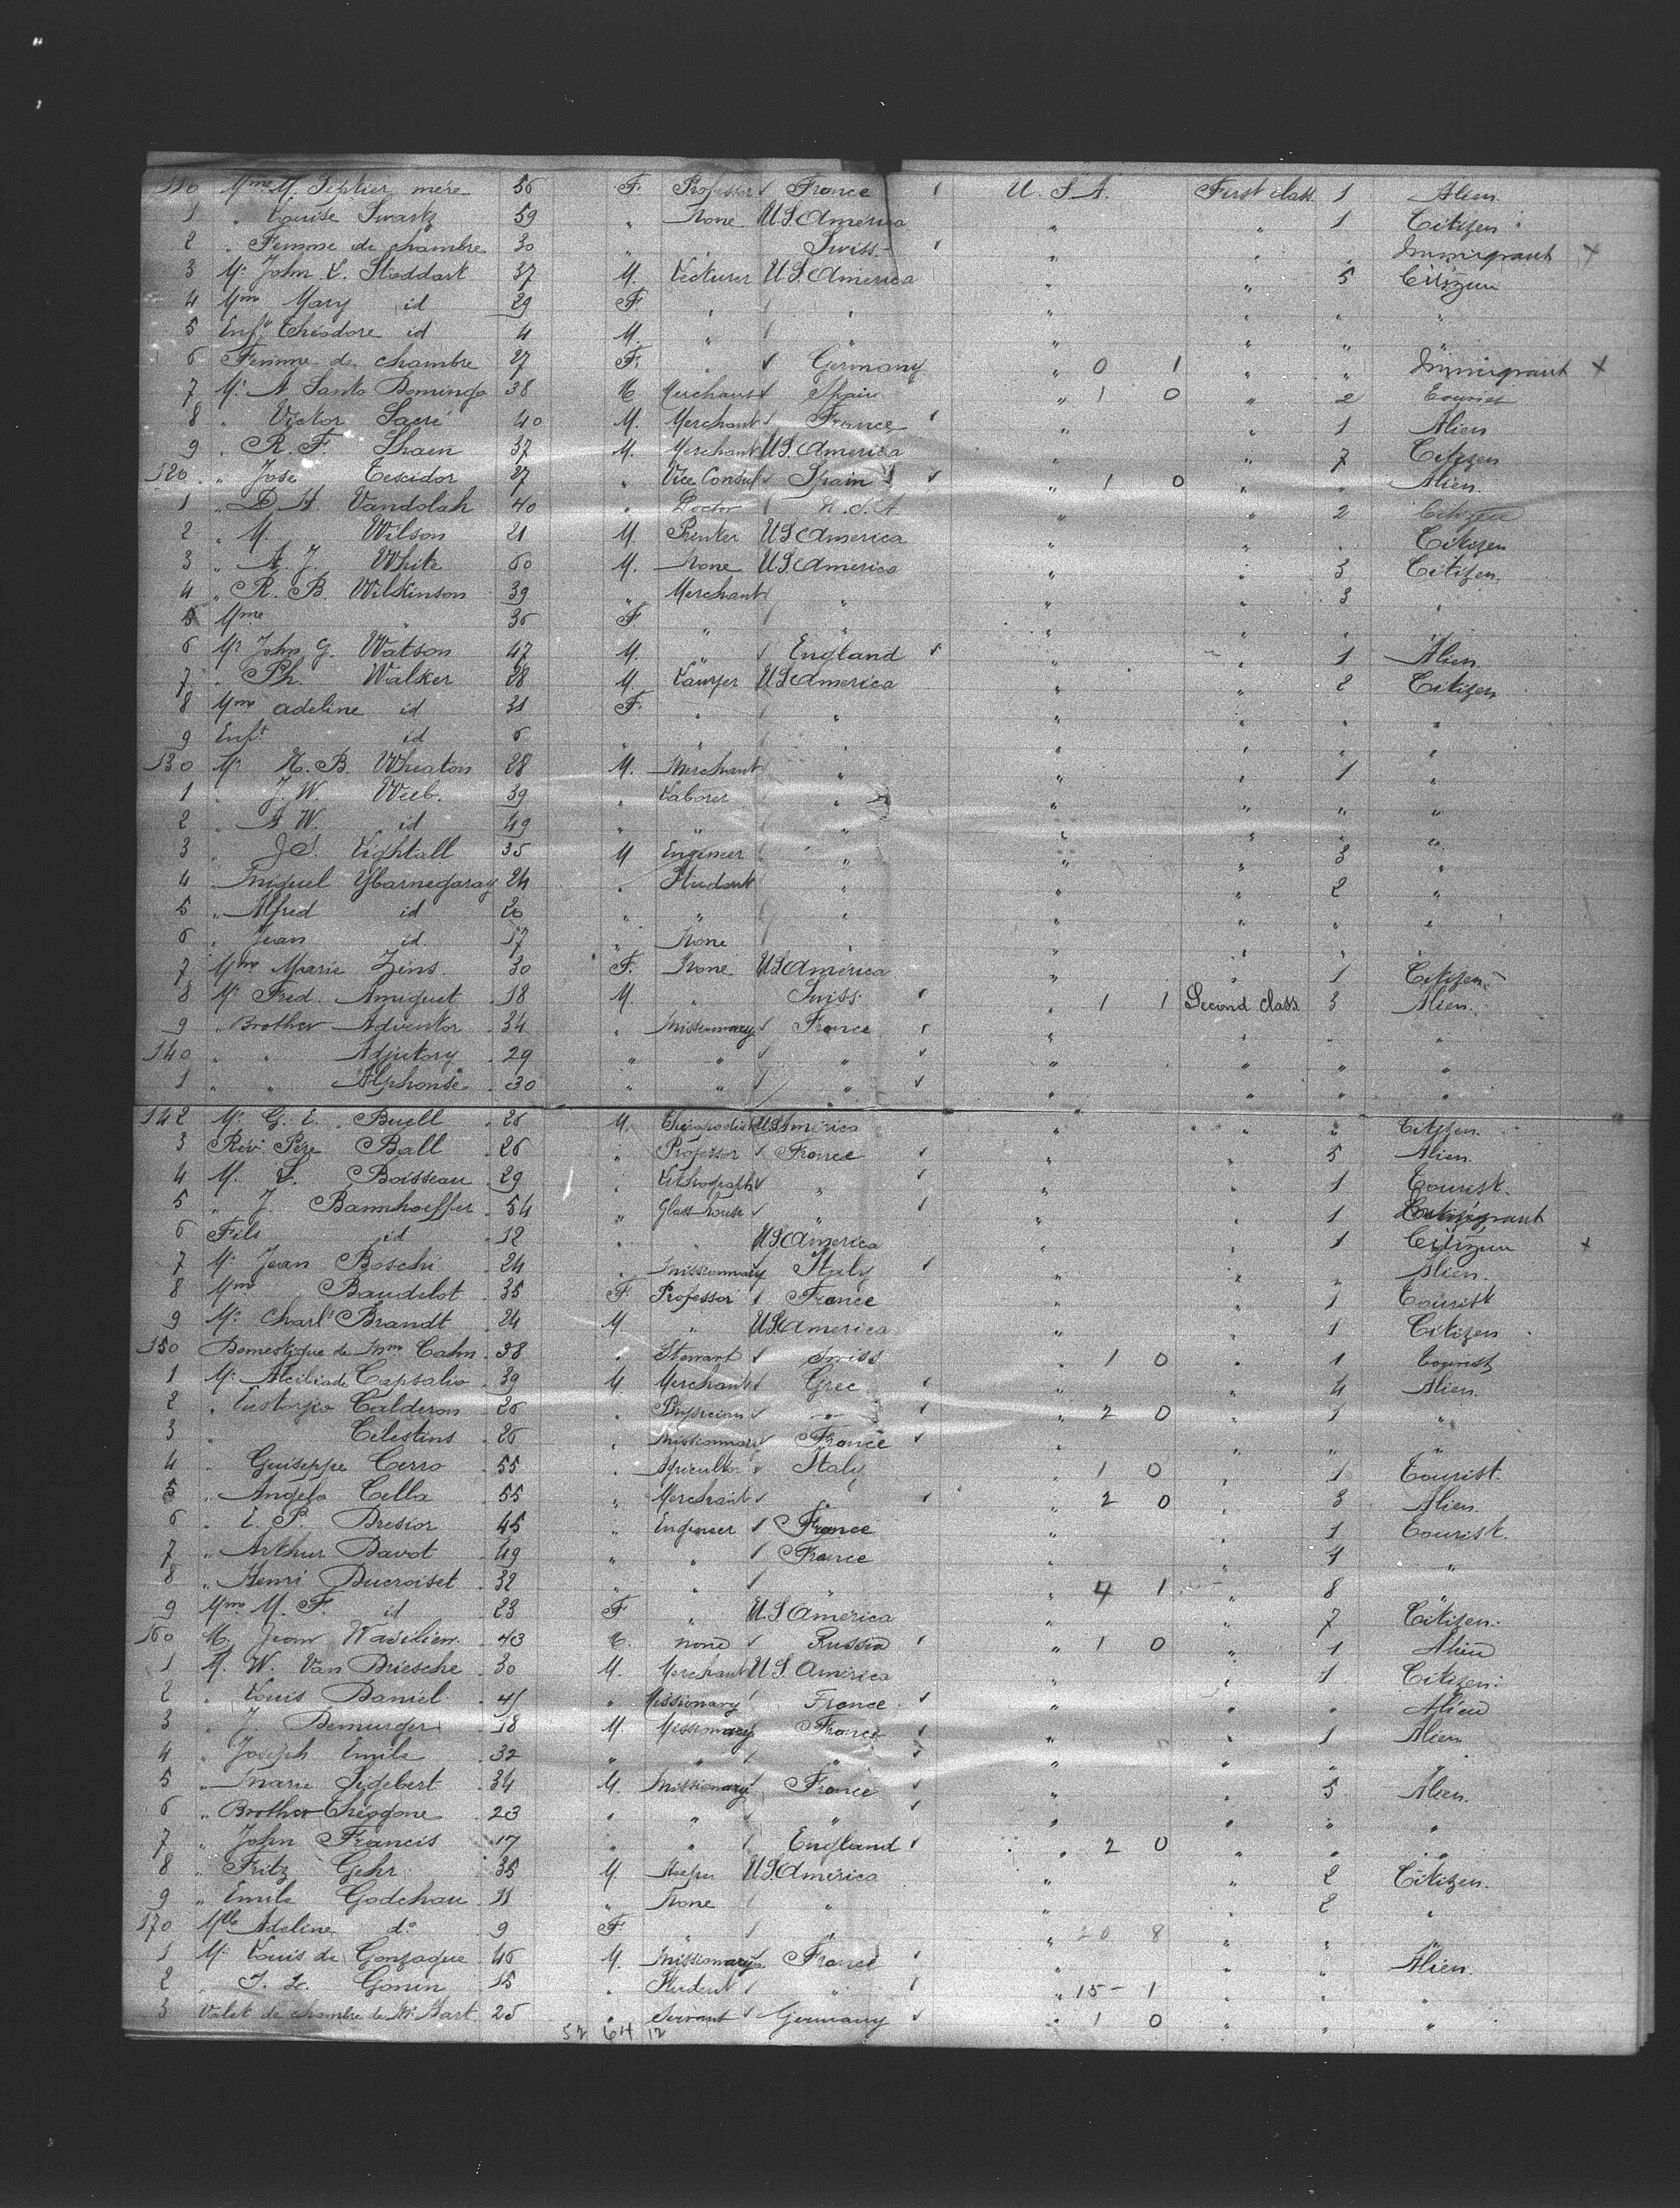 110 Mme M. Septier mère 56 F. Professor √ France √ U. S. A. First class 1 Alien.
1 " Louise Swartz 59 " None U.S. America " " 1 Citizen
2 " Femme de chambre 30 " " Swiss √ " " " Immigrant X
3 Mr John L. Stoddart 37 M. Lecturer U.S. America " " 5 Citizen
4 Mme Mary id 29 F. " " " " " "
5 Enft Théodore id 4 M. " " " " " "
6 Femme de chambre 27 F. " √ Germany " 0 1 " " Immigrant X
7 Mr A. Santo Domingo 38 M Merchant √ Spain " 1 0 " 2 Tourist
8 " Victor Sacré 40 M. Merchant √ France √ " " 1 Alien
9 " R. F. Shaen 37 M. Merchant U.S. America " " 7 Citizen
120 " José Texidor 27 " Vice Consul √ Spain √ " 1 0 " " Alien.
1 " D. H. Vandolah 40 " Doctor U. S. A. " " 2 Citizen
2 " M. Wilson 21 M. Printer U.S. America " " " Citizen
3 " A. J. White 60 M. None U.S. America " " 3 Citizen.
4 " R. B. Wilkinson 39 " Merchant " " " 3 "
5 Mme " 36 F " " " " " "
6 Mr John G. Watson 47 M. " √ England √ " " 1 Alien.
7 " Ph. Walker 28 M Lawyer U.S. America " " 2 Citizen
8 Mme Adeline id 31 F. " " " " " "
9 Enft id 6 " " " " " " "
130 Mr H. B. Wheaton 28 M. Merchant " " " 1 "
1 " J. W. Weeb. 39 " Laborer " " " " "
2 " A W. id 49 " " " " " " "
3 " J. S. Lightall 35 M Engineer " " " 3 "
4 Miguel Ybarnegaray 24 " Student " " " 2 "
5 " Alfred id 20 " " " " " " "
6 " Jean id. 17 " None " " " " "
7 Mme Marie Zins. 30 F. None U.S. America " " 1 Citizen.
8 Mr Fred. Amiguet 18 M. " Swiss √ " 1 1 Second class 3 Alien.
9 " Brother Adventor 34 " Missionnary √ France √ " " " "
140 " " Adjutory 29 " " √ " √ " " " "
1 " " Alphonse 30 " " √ " √ " " " "
142 Mr G. E. Buell 26 M. U.S. America " " " Citizen.
3 Rév. Père Ball 26 " Professor √ France √ " " 5 Alien.
4 M. L. Boisseau 29 " Lithograph √ " √ " " 1 Tourist.
5 " J. Bannhoeffer 54 " Glass house √ " √ " " 1
6 Fils id 12 " " U.S. America " " 1 Citizen X
7 Mr Jean Boschi 24 " Missionnary Italy √ " " " Alien.
8 Mme Baudelot 35 F Professor √ France " " 1 Tourist
9 Mr Charls Brandt 24 M. " U.S. America " " 1 Citizen
150 Domestique de Mme Cahn 38 " Stewart √ Swiss " 1 0 " 1 Tourist
1 Mr Alcibiade Capsalis 39 M. Merchant √ Grec √ " " 4 Alien.
2 " Eustorgio Calderon 26 " Physician √ " √ " 2 0 " 1 "
3 " Célestins 26 " Missionnary √ France √ " " " "
4 " Guiseppe Cerro 55 " Agricultor √ Italy " 1 0 " 1 Tourist.
5 " Angelo Cella 55 " Merchant √ " √ " 2 0 " 3 Alien.
6 " E. P. Bresior 45 " Engineer √ France " " 1 Tourist.
7 " Arthur Davot 49 " " √ France " " 1 "
8 " Henri Ducroiset 32 " " √ " " 4 1 " 8 "
9 Mme M. F. id 23 F " U.S. America " " 7 Citizen.
160 M. Jean Wasilien 43 M. none √ Russia √ " 1 0 " 1 Alien
1 M. W. Van Driesche 30 M. Merchant U.S. America " " 1 Citizen.
2 " Louis Daniel 41 " Missionary √ France √ " " " Alien
3 " J. Demurger 18 M. Missionnary France √ " " 1 Alien
4 " Joseph Emile 32 " " √ " √ " " " "
5 " Marie Sigebert 34 M. Missionnary √ France √ " " 5 Alien.
6 " Brother Théogone 23 " " √ " √ " " " "
7 " John Francis 17 " " √ England √ " 2 0 " " "
8 " Fritz Gehr 35 M U.S. America " " 2 Citizen.
9 " Emile Godchau 11 " None " " " 2 "
170 Mlle Adeline do 9 F. " " " 20 8 " " "
1 Mr Louis de Gonzague 46 M. Missionnary √ France √ " " " Alien.
2 " J. Gonin 15 " Student √ " √ " 15 - 1 " " "
3 Valet de chambre de Mr Hart 25 " Servant √ Germany √ " 1 0 " " "
52 64 12